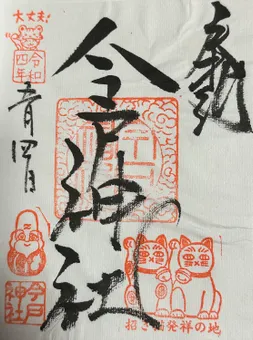 奉拝
今戸神社
招き猫発祥の地
大丈夫!
令和
四年
五月四日
今戸
神社